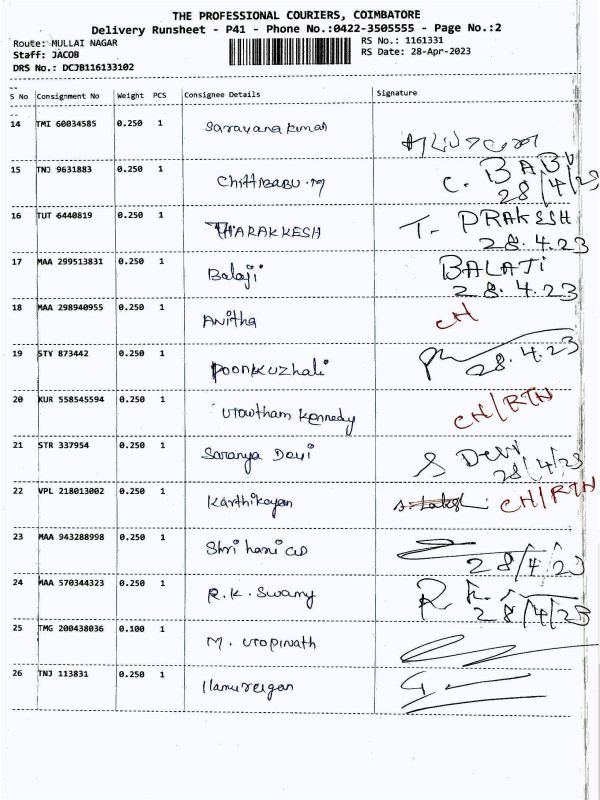 THE PROFESSIONAL COURIERS, COIMBATORE
Delivery Runsheet - P41 - Phone No.:0422-3505555 - Page No.:2
Route: MULLAI NAGAR RS No.: 1161331
Staff: JACOB RS Date: 28-Apr-2023
DRS No.: DCJB116133102
S No Consignment No Weight PCS Consignee Details Signature
14 TMI 60034585 0.250 1 Saravanakumar
15 TNJ 9631883 0.250 1 Chittibabu.M C. BABU
28/4/23
16 TUT 6440819 0.250 1 THARAKKESH T- PRAKESH
28.4.23
17 MAA 299513831 0.250 1 Balaji BALAJi
28.4.23
18 MAA 298940955 0.250 1 Anitha CH
19 STY 873442 0.250 1 Poonkuzhali 28.4.23
20 KUR 558545594 0.250 1 Gowtham Kennedy CH/RTN
21 STR 337954 0.250 1 Saranya Devi S Devi
28/4/23
22 VPL 218013002 0.250 1 Karthikeyan CH/RTN
23 MAA 943288998 0.250 1 28/4/23
24 MAA 570344323 0.250 1 R.K. Swamy R.K.
28/4/23
25 TMG 200438036 0.100 1 M. Gopinath
26 TNJ 113831 0.250 1